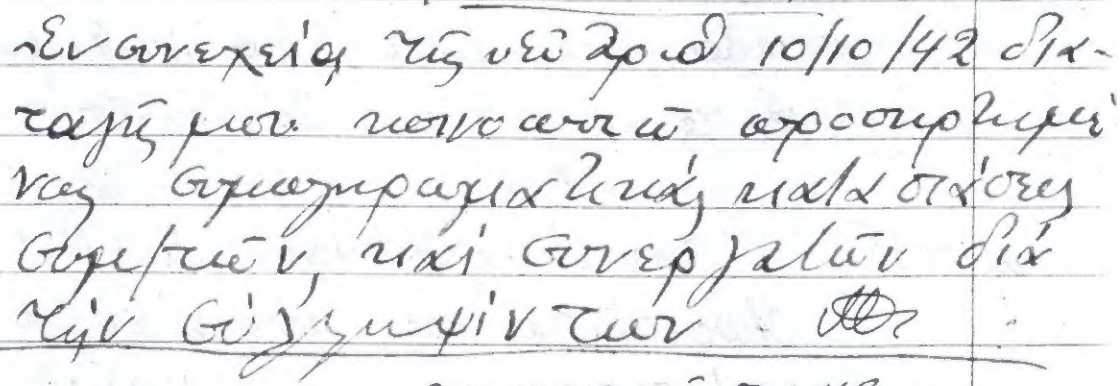 Ἐν συνεχείᾳ τῆς ὑπ' ἀριθ 10/10/42 δια-
ταγῆς μου κοινοποιῶ προσηρτημέ
νας συμπληρωματικάς καταστάσεις
συμ/τῶν, καί συνεργατῶν διά
τήν σύλληψίν των.